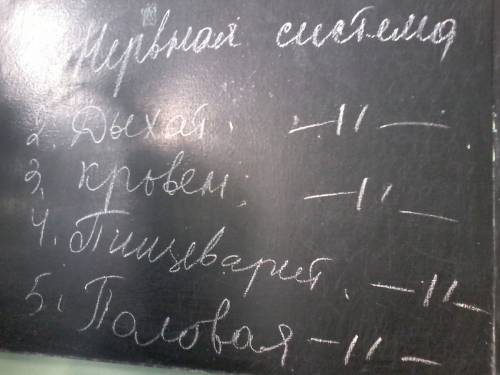 Нервная система
2. Дыхат. —"—
3. Кровен. —"—
4. Пищеварит. —"—
5. Половая —"—